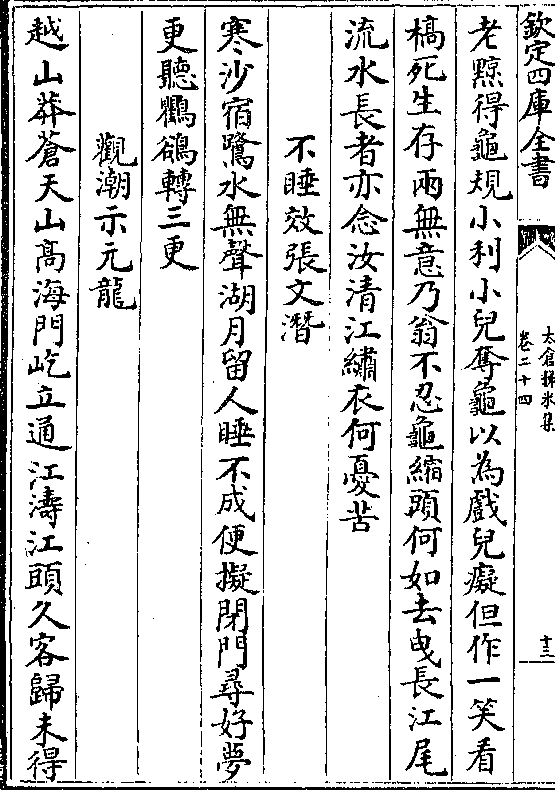 欽定四庫全書
太倉稊米集
卷二十四
十三
老黥得龜規小利小兒奪龜以為戲兒癡但作一笑看
槁死生存兩無意乃翁不忍龜縮頭何如去曳長江尾
流水長者亦念汝清江繡衣何憂苦
不睡效張文潛
寒沙宿鷺水無聲湖月留人睡不成便擬閉門尋好夢
更聽鸜鵒轉三更
觀潮示元龍
越山莽蒼天山高海門屹立通江濤江頭久客歸未得